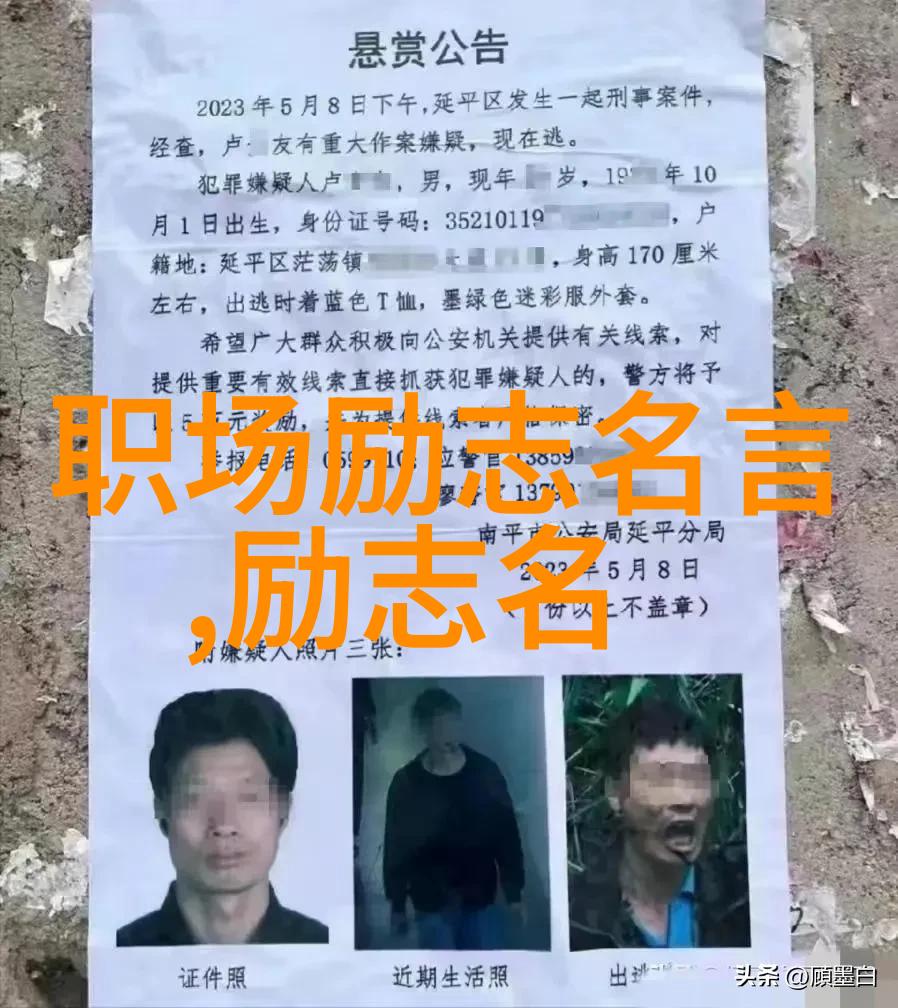 悬赏公告
2023年5月8日下午，延平区发生一起刑事案件，
经查，卢 友有重大作案嫌疑，现在逃。
犯罪嫌疑人卢 ，男，现年 岁，19 年10
月1日出生，身份证号码：35210119 ，户
籍地：延平区茫荡镇 ，身高170厘米
左右，出逃时着蓝色T恤，墨绿色迷彩服外套。
希望广大群众积极向公安机关提供有关线索，对
提供重要有效线索直接抓获犯罪嫌疑人的，警方将予
5 元奖励， 线索
职场励志名言
举报电话 应警官13859
1379
,励志名
南平市公安局延平分局
2023年5月8日
份以上不盖章）
附嫌疑人照片三张：
证件照
近期生活照
出逃
头条 @顾墨白